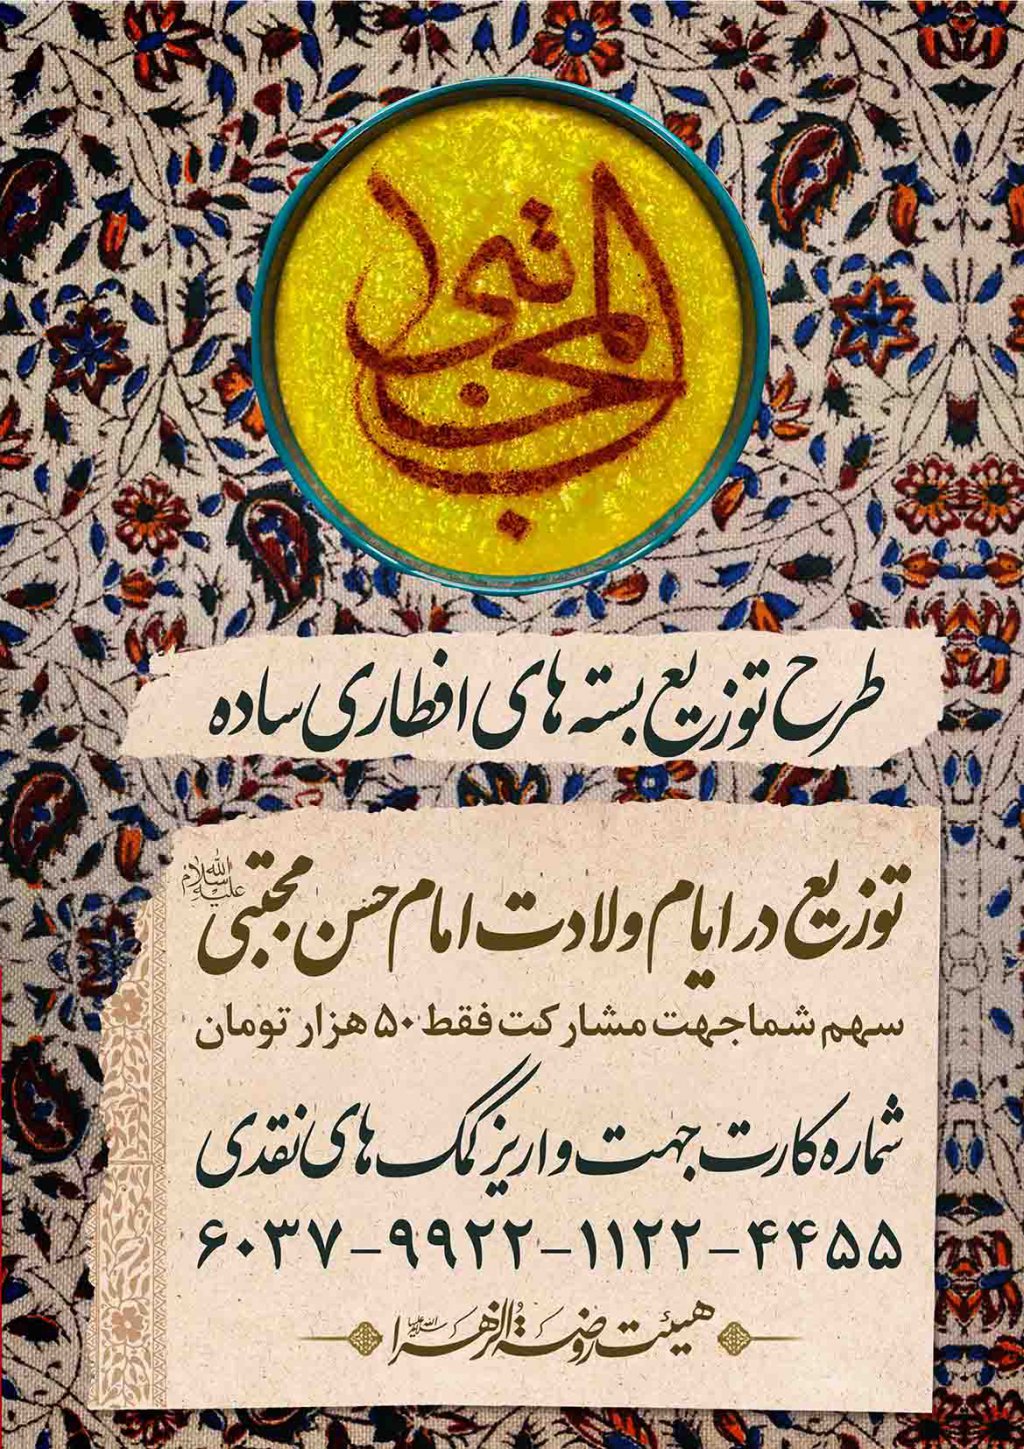 المجتبی
طرح توزیع بسته های افطاری ساده
توزیع در ایام ولادت امام حسن مجتبی علیه السلام
سهم شما جهت مشارکت فقط ۵۰ هزار تومان
شماره کارت جهت واریز کمک های نقدی
۶۰۳۷-۹۹۲۲-۱۱۲۲-۴۴۵۵
هیئت روضة الزهرا سلام الله علیها